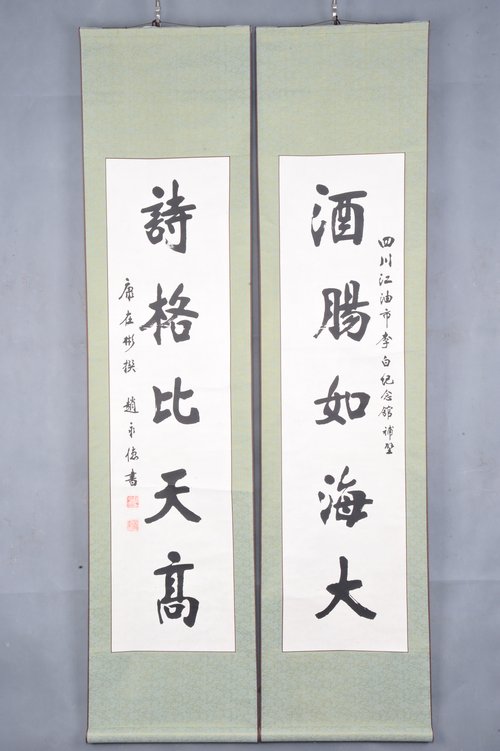 四川江油市李白纪念馆補壁
酒腸如海大
詩格比天高
康在彬撰 趙永德書